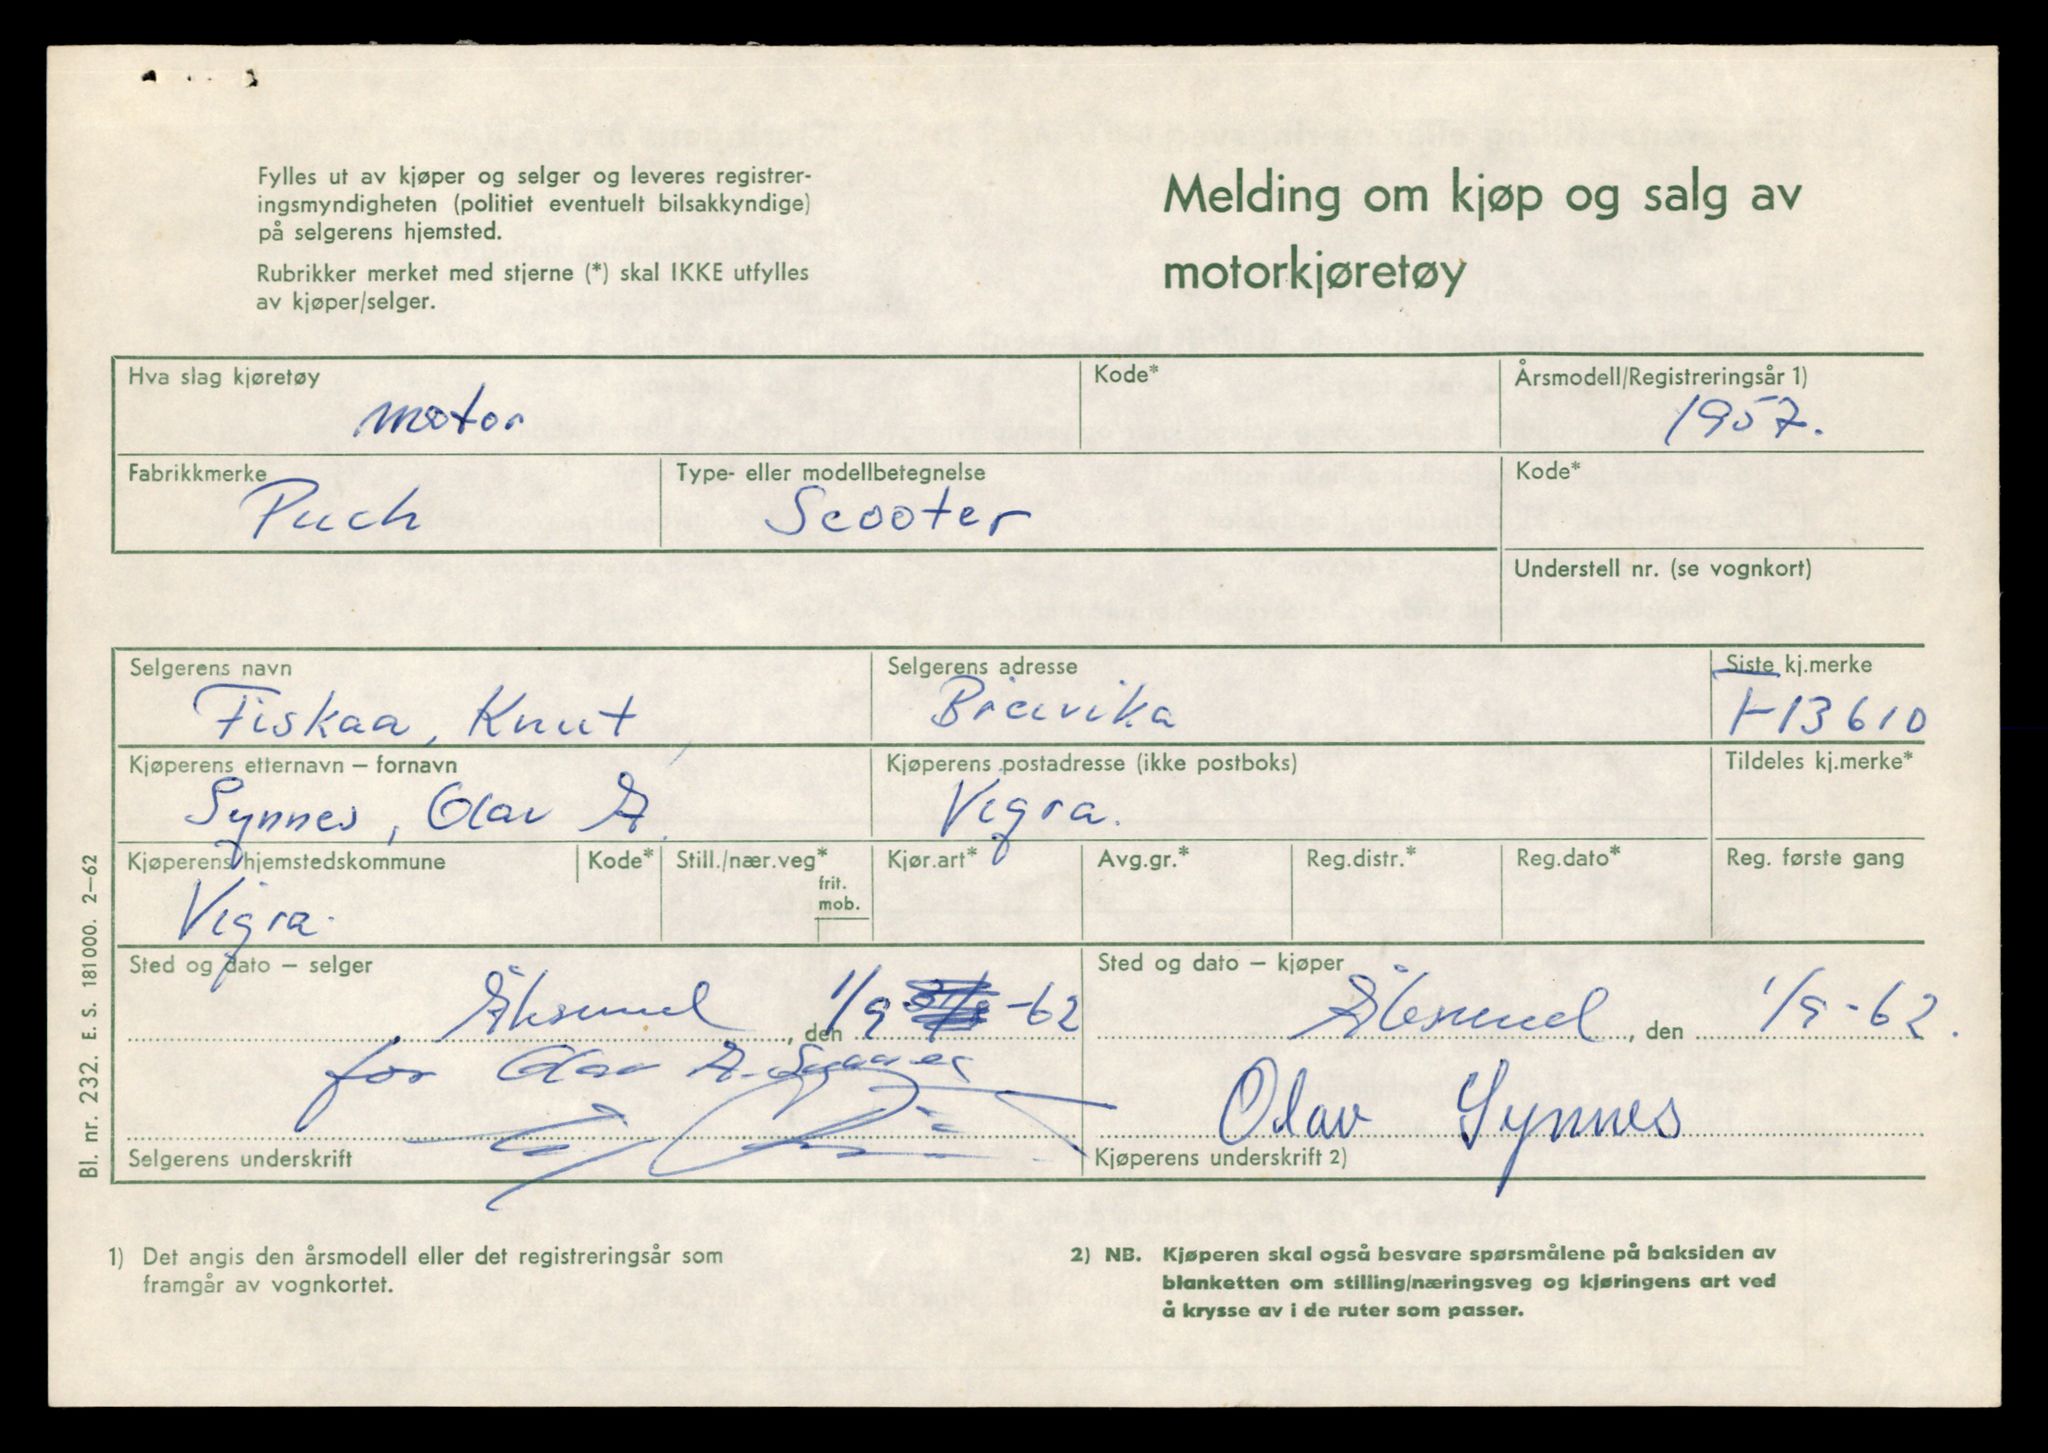 Fylles ut av kjøper og selger og leveres registrer-
ingsmyndigheten (politiet eventuelt bilsakkyndige)
på selgerens hjemsted.
Rubrikker merket med stjerne (*) skal IKKE utfylles
av kjøper/selger.
Melding om kjøp og salg av
motorkjøretøy
Hva slag kjøretøy
motor
Kode*
Årsmodell/Registreringsår 1)
1957.
Fabrikkmerke
Puch
Type- eller modellbetegnelse
Scooter
Kode*
Understell nr. (se vognkort)
Selgerens navn
Fiskaa, Knut
Selgerens adresse
Breivika
Siste kj.merke
T-13610
Kjøperens etternavn – fornavn
Synnes, Olav A.
Kjøperens postadresse (ikke postboks)
Vigra.
Tildeles kj.merke*
Kjøperens hjemstedskommune
Vigra.
Kode*
Still./nær.veg*
frit.
mob.
Kjør.art*
Avg.gr.*
Reg.distr.*
Reg.dato*
Reg. første gang
Sted og dato – selger
Ålesund, den 1/9 -62
for Olav A. Synnes
Selgerens underskrift
Sted og dato – kjøper
Ålesund, den 1/9-62.
Olav Synnes
Kjøperens underskrift 2)
Bl. nr. 232. E. S. 181000. 2–62
1) Det angis den årsmodell eller det registreringsår som
framgår av vognkortet.
2) NB. Kjøperen skal også besvare spørsmålene på baksiden av
blanketten om stilling/næringsveg og kjøringens art ved
å krysse av i de ruter som passer.